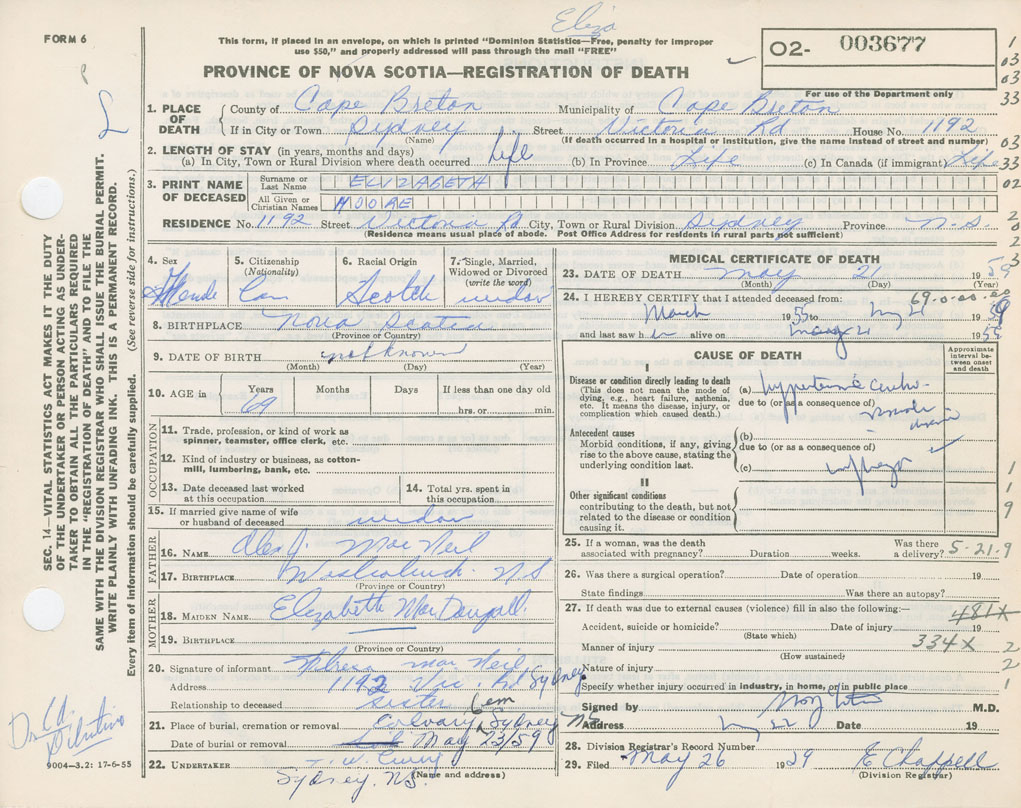 Eliza
FORM 6
This form, if placed in an envelope, on which is printed "Dominion Statistics—Free, penalty for improper
use $50," and properly addressed will pass through the mail "FREE"
O2- 003677
For use of the Department only
PROVINCE OF NOVA SCOTIA—REGISTRATION OF DEATH
1. PLACE OF DEATH County of Cape Breton Municipality of Cape Breton
If in City or Town Sydney Street Victoria Rd House No. 1192
(Name) (If death occurred in a hospital or institution, give the name instead of street and number)
2. LENGTH OF STAY (in years, months and days)
(a) In City, Town or Rural Division where death occurred Life (b) In Province Life (c) In Canada (if immigrant) Life
3. PRINT NAME OF DECEASED Surname or Last Name ELIZABETH
All Given or Christian Names MOORE
RESIDENCE No. 1192 Street Victoria Rd City, Town or Rural Division Sydney Province N.S.
(Residence means usual place of abode. Post Office Address for residents in rural parts not sufficient)
4. Sex Female
5. Citizenship (Nationality) Can
6. Racial Origin Scotch
7. Single, Married, Widowed or Divorced (write the word) widow
8. BIRTHPLACE Nova Scotia
(Province or Country)
9. DATE OF BIRTH not known
(Month) (Day) (Year)
10. AGE in Years 69 Months Days If less than one day old
hrs. or min.
OCCUPATION
11. Trade, profession, or kind of work as
spinner, teamster, office clerk, etc.
12. Kind of industry or business, as cotton-
mill, lumbering, bank, etc.
13. Date deceased last worked
at this occupation
14. Total yrs. spent in
this occupation
15. If married give name of wife
or husband of deceased widow
FATHER
16. NAME Alex J. MacNeil
17. BIRTHPLACE N S
(Province or Country)
MOTHER
18. MAIDEN NAME Elizabeth MacDougall
19. BIRTHPLACE
(Province or Country)
20. Signature of informant Mac Neil
Address 1192 Vic. Rd Sydney
Relationship to deceased sister
21. Place of burial, cremation or removal Calvary Cem Sydney NS
Date of burial or removal May 23/59
22. UNDERTAKER T. W. Curry
(Name and address)
Sydney, N.S.
MEDICAL CERTIFICATE OF DEATH
23. DATE OF DEATH May 21 1959
(Month) (Day) (Year)
69-0-00-00
24. I HEREBY CERTIFY that I attended deceased from:
March 1955 to May 21 1959
and last saw h alive on May 21 1959
CAUSE OF DEATH
Approximate interval between onset and death
I
Disease or condition directly leading to death
(This does not mean the mode of
dying, e.g., heart failure, asthenia,
etc. It means the disease, injury, or
complication which caused death.)
(a) hypertensive
due to (or as a consequence of)
Antecedent causes
Morbid conditions, if any, giving
rise to the above cause, stating the
underlying condition last.
(b)
due to (or as a consequence of)
(c)
II
Other significant conditions
contributing to the death, but not
related to the disease or condition
causing it.
25. If a woman, was the death
associated with pregnancy? Duration weeks. Was there
a delivery? 5-21-9
26. Was there a surgical operation? Date of operation 19
State findings Was there an autopsy?
27. If death was due to external causes (violence) fill in also the following:—
481X
Accident, suicide or homicide? Date of injury 19
(State which)
334X
Manner of injury
(How sustained)
Nature of injury
Specify whether injury occurred in industry, in home, or in public place
Signed by M.D.
Address May 22 Date 19
28. Division Registrar's Record Number
29. Filed May 26 1959 E Chappell
(Division Registrar)
SEC. 14—VITAL STATISTICS ACT MAKES IT THE DUTY
OF THE UNDERTAKER OR PERSON ACTING AS UNDER-
TAKER TO OBTAIN ALL THE PARTICULARS REQUIRED
IN THE "REGISTRATION OF DEATH" AND TO FILE THE
SAME WITH THE DIVISION REGISTRAR WHO SHALL ISSUE THE BURIAL PERMIT.
WRITE PLAINLY WITH UNFADING INK. THIS IS A PERMANENT RECORD.
Every item of information should be carefully supplied. (See reverse side for instructions.)
9004-3.2: 17-6-55
1
03
03
33
03
33
02
2
0
2
3
1
1
9
2
2
1